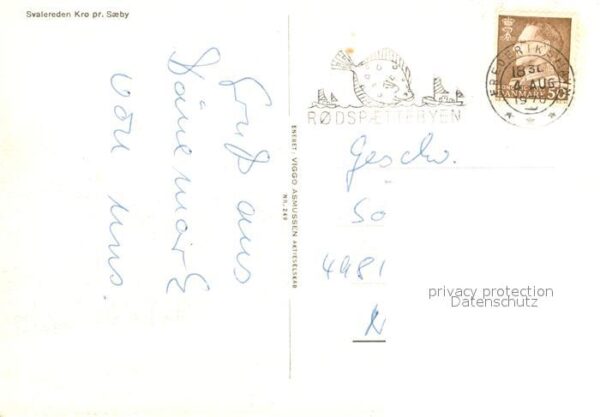 Svalereden Kro pr. Sæby
Gruß aus
Dänemark
von uns.
ENERET: VIGGO ASMUSSEN AKTIESELSKAB
NR. 249
RØDSPÆTTEBYEN
FREDERIKSHAVN
4 AUG
1970
DANMARK 50
Geschw.
So
4981
N
privacy protection
Datenschutz